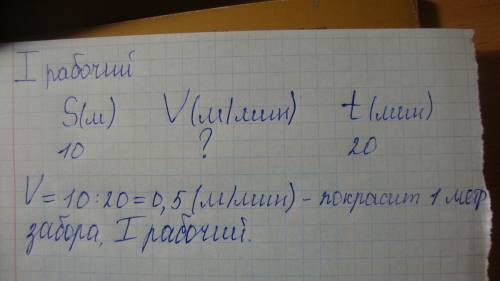 I рабочий
S(м) V(м/мин) t(мин)
10 ? 20
V = 10:20 = 0,5 (м/мин) - покрасит 1 метр
забора, I рабочий.